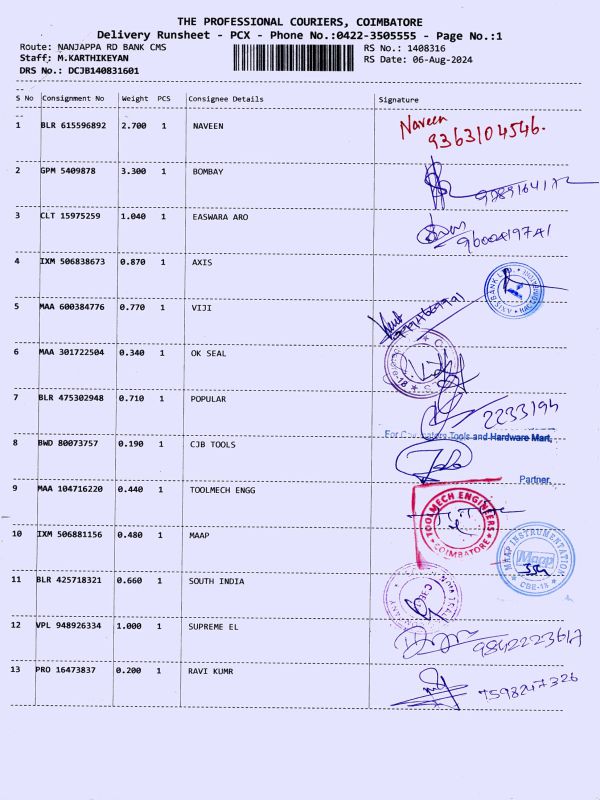 THE PROFESSIONAL COURIERS, COIMBATORE
Delivery Runsheet - PCX - Phone No.:0422-3505555 - Page No.:1
Route: NANJAPPA RD BANK CMS RS No.: 1408316
Staff: M.KARTHIKEYAN RS Date: 06-Aug-2024
DRS No.: DCJB140831601
S No Consignment No Weight PCS Consignee Details Signature
1 BLR 615596892 2.700 1 NAVEEN Naveen
9363104546.
2 GPM 5409878 3.300 1 BOMBAY
3 CLT 15975259 1.040 1 EASWARA ARO
9600419741
4 IXM 506838673 0.870 1 AXIS
AXIS BANK LTD.
5 MAA 600384776 0.770 1 VIJI
6 MAA 301722504 0.340 1 OK SEAL
7 BLR 475302948 0.710 1 POPULAR 2233194
For Coimbatore Tools and Hardware Mart,
8 BWD 80073757 0.190 1 CJB TOOLS
Partner.
9 MAA 104716220 0.440 1 TOOLMECH ENGG
TOOLMECH ENGINEERS
COIMBATORE
10 IXM 506881156 0.480 1 MAAP
MAAP INSTRUMENTATION
Maap
CBE-18
11 BLR 425718321 0.660 1 SOUTH INDIA
12 VPL 948926334 1.000 1 SUPREME EL 9842223617
13 PRO 16473837 0.200 1 RAVI KUMR 7598247326